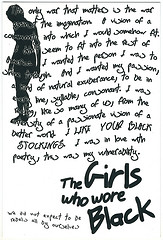 only war that matters is the war
the imagination. A vision of a
community into which I would somehow fit.
seem to fit into the rest of
I wanted the person I was to
But I wanted my passion,
and of natural exuberance, to be in
syllable, consonant. I was
like so many of us, from the
intensity of a passionate vision of a
better world. I LIKE YOUR BLACK
STOCKINGS. I was in love with
poetry, this was my vulnerability.
The Girls
who wore
Black
we did not expect to be
ourselves